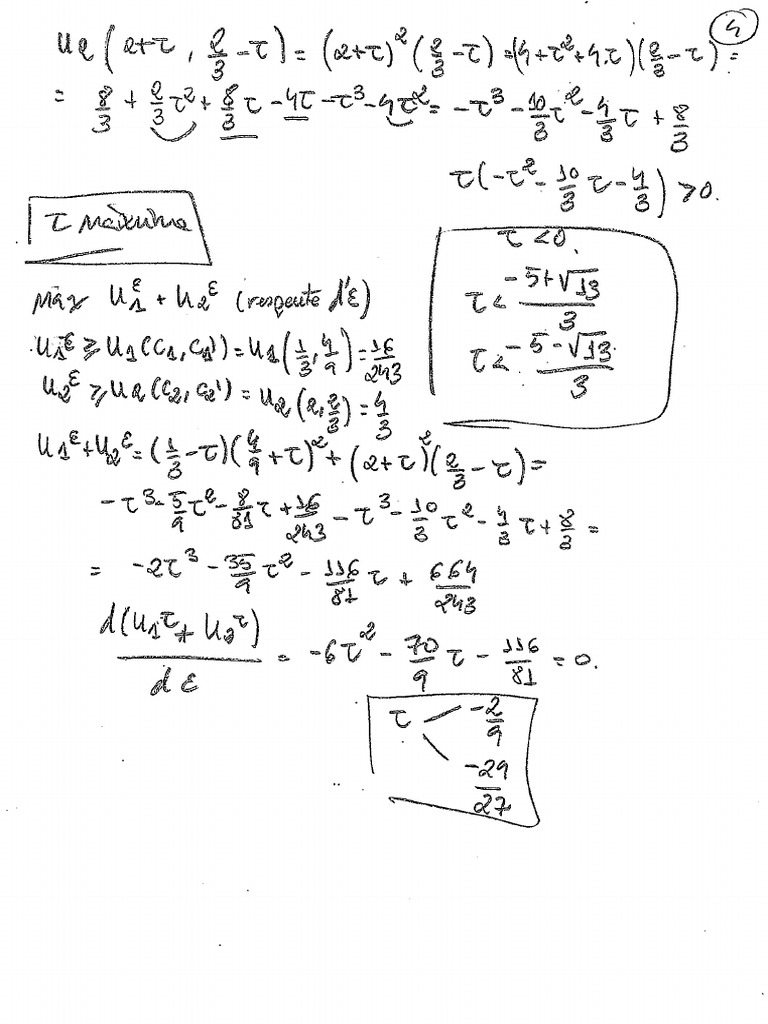 4
U2(2+τ, 2/3-τ) = (2+τ)²(2/3-τ) = (4+τ²+4τ)(2/3-τ) =
= 8/3 + 2/3τ² + 8/3τ - 4τ - τ³ - 4τ² = -τ³ - 10/3τ² - 4/3τ + 8/3
τ(-τ² - 10/3τ - 4/3) > 0.
τ màxima
τ < 0.
τ < (-5+√13)/3
τ < (-5-√13)/3
màx U1^ε + U2^ε (respecte d'ε)
U1^ε ≥ U1(C1, C1') = U1(1/3, 4/9) = 16/243
U2^ε ≥ U2(C2, C2') = U2(2, 2/3) = 4/3
U1^ε + U2^ε = (1/3-τ)(4/9+τ)² + (2+τ)²(2/3-τ) =
-τ³ - 5/9τ² - 8/81τ + 16/243 - τ³ - 10/3τ² - 4/3τ + 8/3 =
= -2τ³ - 35/9τ² - 116/81τ + 664/243
d(U1^τ + U2^τ)/dε = -6τ² - 70/9τ - 116/81 = 0.
τ -2/9
-29/27